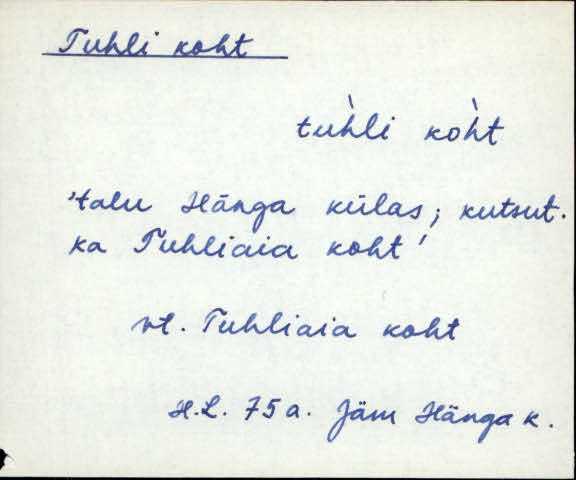 Tuhli koht
tuh̀li koh̀t
'talu Hänga külas; kutsut.
ka Tuhliaia koht'
vt. Tuhliaia koht
H.L. 75 a. Jäm Hänga k.